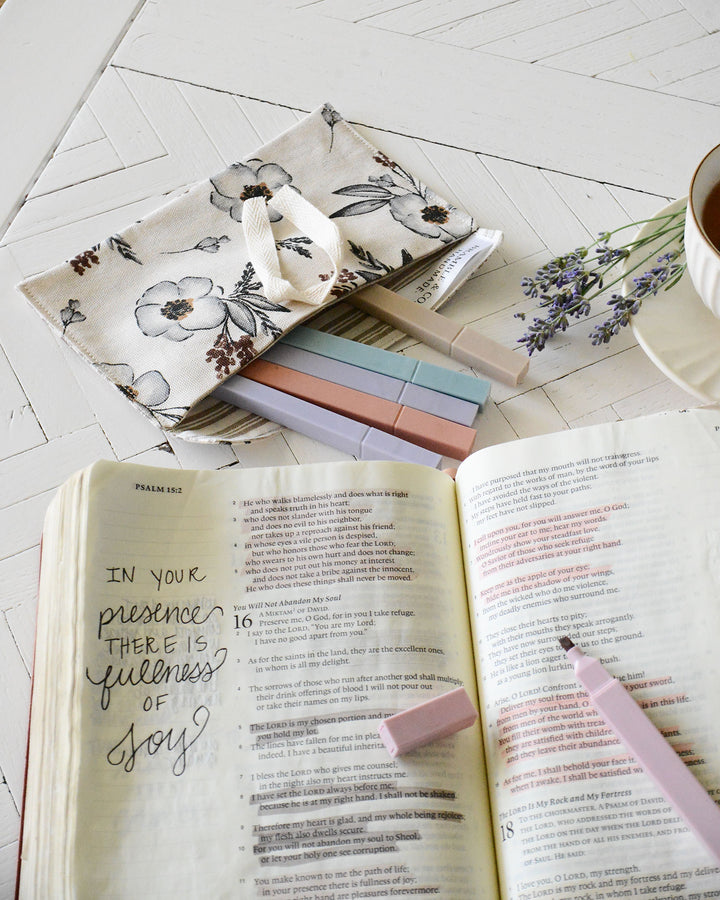 BRAMBLE & CO.
HANDMADE
PSALM 15:2
IN YOUR
presence
THERE IS
fullness
OF
Joy
2 He who walks blamelessly and does what is right
and speaks truth in his heart;
3 who does not slander with his tongue
and does no evil to his neighbor,
nor takes up a reproach against his friend;
4 in whose eyes a vile person is despised,
but who honors those who fear the LORD;
who swears to his own hurt and does not change;
5 who does not put out his money at interest
and does not take a bribe against the innocent.
He who does these things shall never be moved.
You Will Not Abandon My Soul
16 A MIKTAM OF DAVID.
Preserve me, O God, for in you I take refuge.
2 I say to the LORD, "You are my Lord;
I have no good apart from you."
3 As for the saints in the land, they are the excellent ones,
in whom is all my delight.
4 The sorrows of those who run after another god shall multiply;
their drink offerings of blood I will not pour out
or take their names on my lips.
5 The LORD is my chosen portion and my
you hold my lot.
6 The lines have fallen for me in
indeed, I have a beautiful
7 I bless the LORD who gives me counsel;
in the night also my heart instructs me.
8 I have set the LORD always before me;
because he is at my right hand, I shall not be shaken.
9 Therefore my heart is glad, and my whole being rejoices;
my flesh also dwells secure.
10 For you will not abandon my soul to Sheol,
or let your holy one see corruption.
11 You make known to me the path of life;
in your presence there is fullness of joy;
right hand are pleasures forevermore.
I have purposed that my mouth will not transgress.
With regard to the works of man, by the word of your lips
I have avoided the ways of the violent.
My steps have held fast to your paths;
my feet have not slipped.
I call upon you, for you will answer me, O God;
incline your ear to me; hear my words.
Wondrously show your steadfast love,
O Savior of those who seek refuge
from their adversaries at your right hand.
Keep me as the apple of your eye;
hide me in the shadow of your wings,
from the wicked who do me violence,
my deadly enemies who surround me.
They close their hearts to pity;
with their mouths they speak arrogantly.
They have now surrounded our steps;
they set their eyes to us to the ground.
He is like a lion eager bush.
as a young lion
Arise, O LORD! Confront him!
Deliver my soul from the your sword,
from men by your hand, O
from men of the world is in this life.
You fill their womb with
they are satisfied with
and they leave their abundance infants.
As for me, I shall behold your face in
when I awake, I shall be satisfied
The LORD Is My Rock and My Fortress
18 TO THE CHOIRMASTER. A PSALM OF DAVID,
THE LORD, WHO ADDRESSED THE WORDS OF
THE LORD ON THE DAY WHEN THE LORD
FROM THE HAND OF ALL HIS ENEMIES, AND FROM
OF SAUL. HE SAID:
I love you, O LORD, my strength.
The LORD is my rock and my fortress and my
my God, my rock, in whom I take refuge,